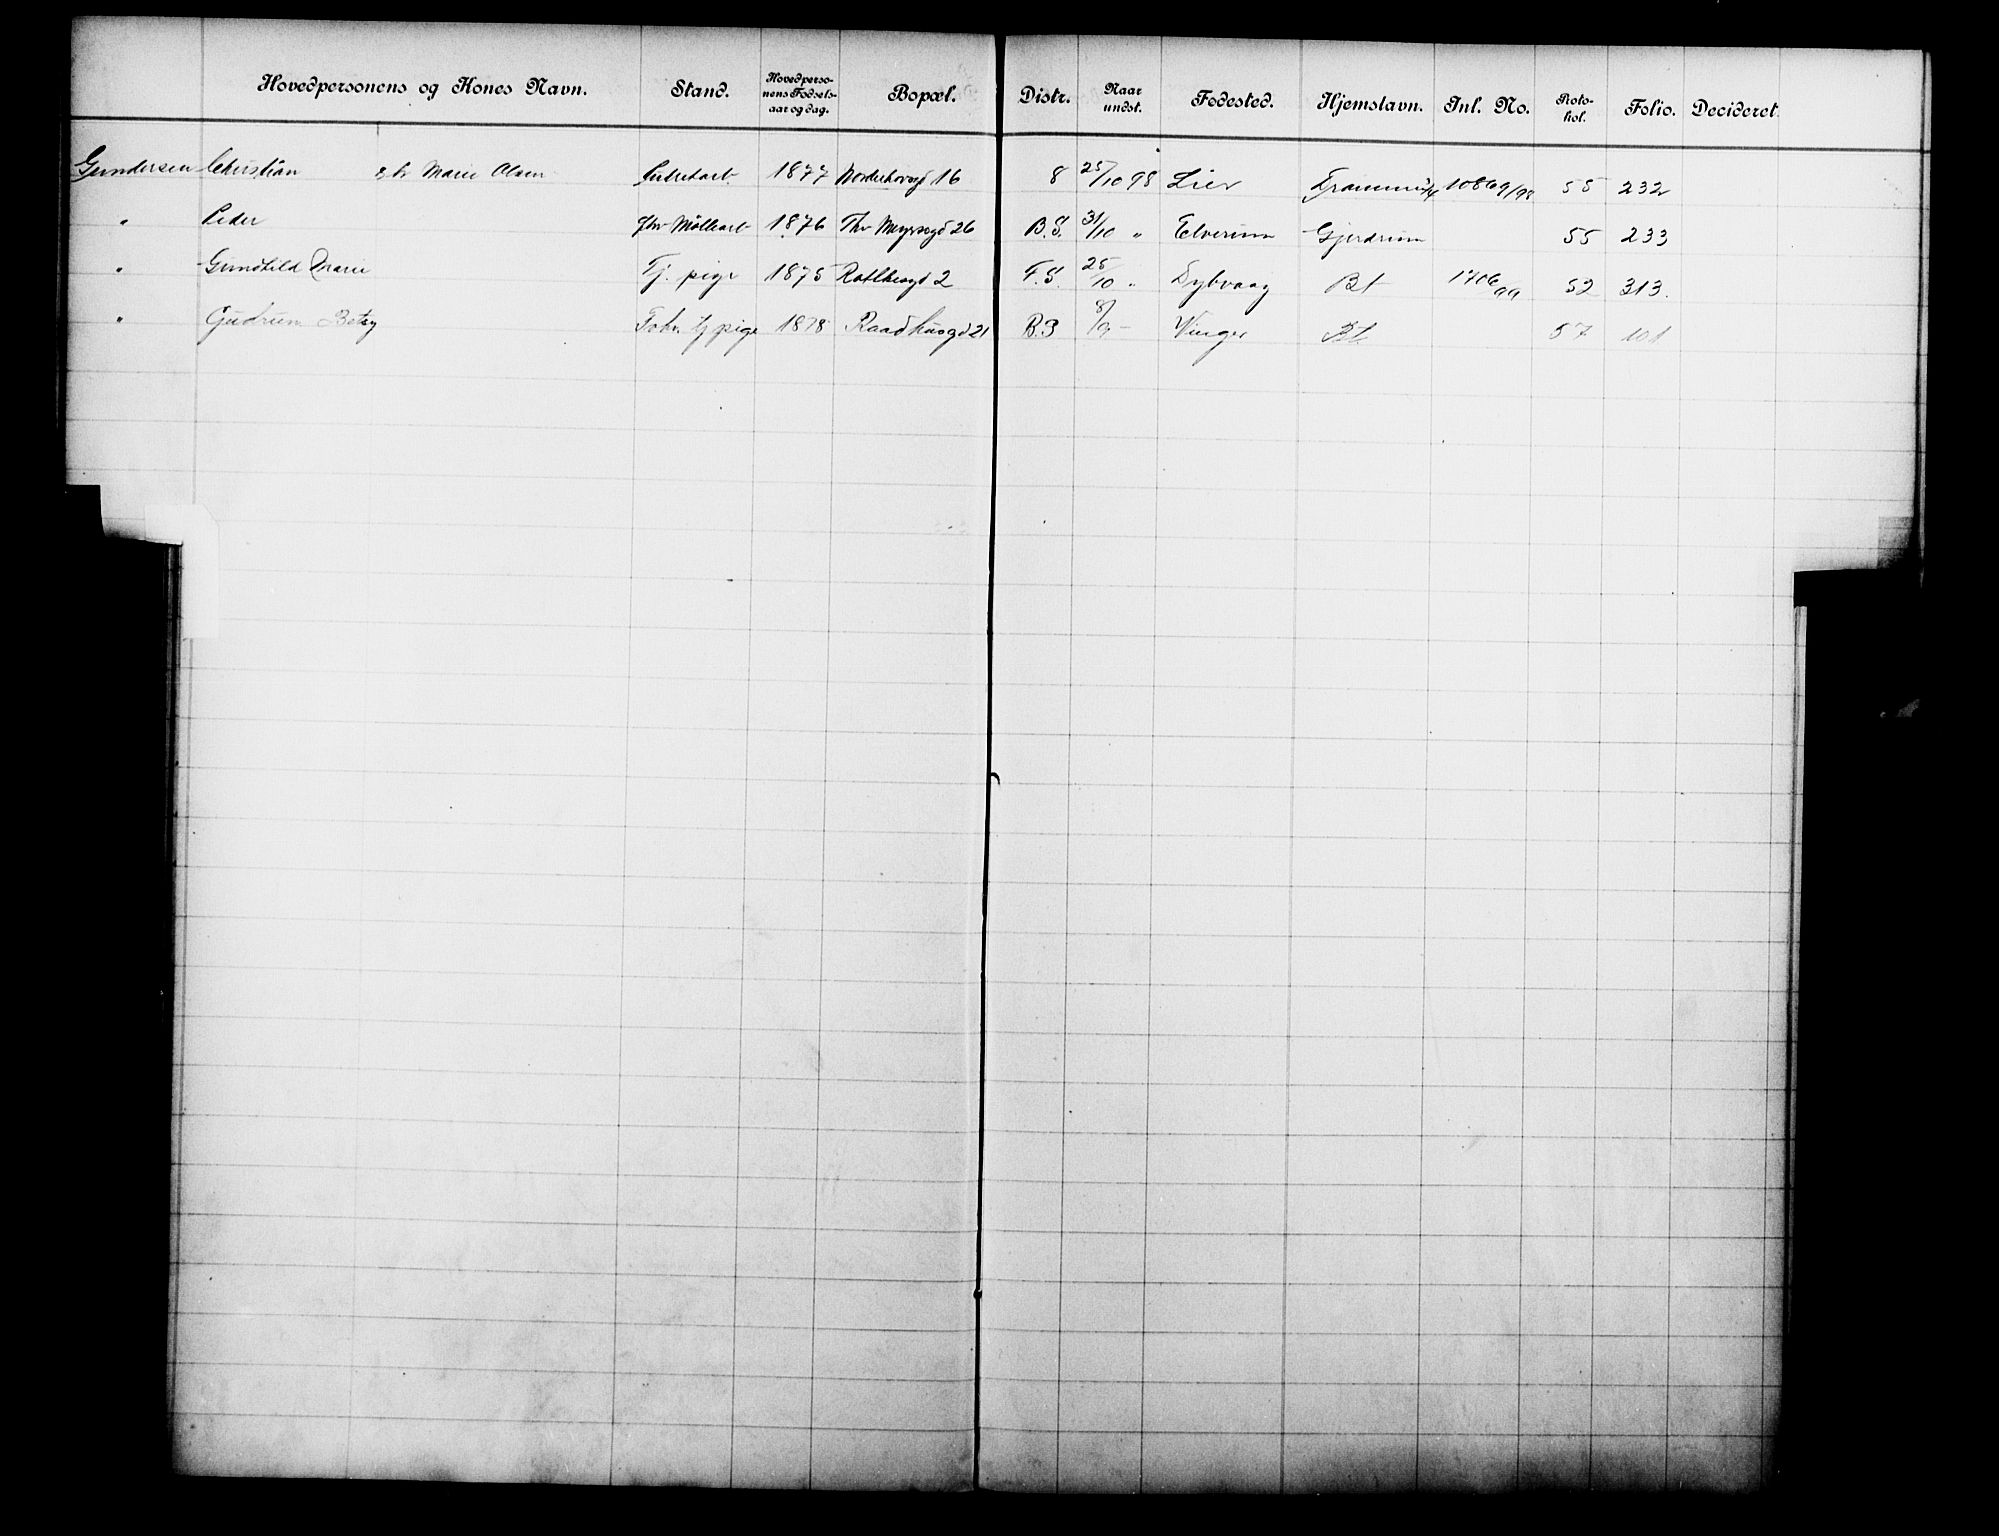 Hovedpersonens og Kones Navn. Stand. Hovedperso-nens Fødsels-aar og dag. Bopæl. Distr. Naar undst. Fødested. Hjemstavn. Inl. No. Proto-kol. Folio. Decideret.
Gundersen Christian g h Marie Olsen 1877 Norderhovsgd 16 8 25/10 98 Lier 10869/98 55 232
" Peder Møllearb 1876 Thv Meyersgd 26 B.S. 31/10 " Elverum Gjerdrum 55 233
" Gunhild Marie Tj. pige 1875 Rathkesgd 2 F.S. 25/10 " Dybvaag Bt 1706/99 52 313.
" Gudrun Betsy Tj pige 1878 Raadhusgd 21 B.S 8/9 - Vinger Bt 57 101